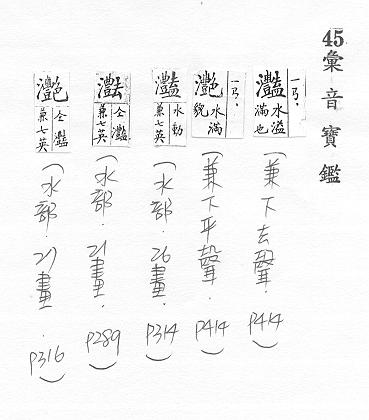 45 彙音寶鑑
灩 水溢滿也 (兼下去聲. P414)
灧 水滿貌 (兼下平聲. P414)
灩 水動 兼七英 (水部. 26畫. P314)
仝灩 兼七英 (水部. 21畫. P289)
灧 仝灩 兼七英 (水部. 27畫. P316)